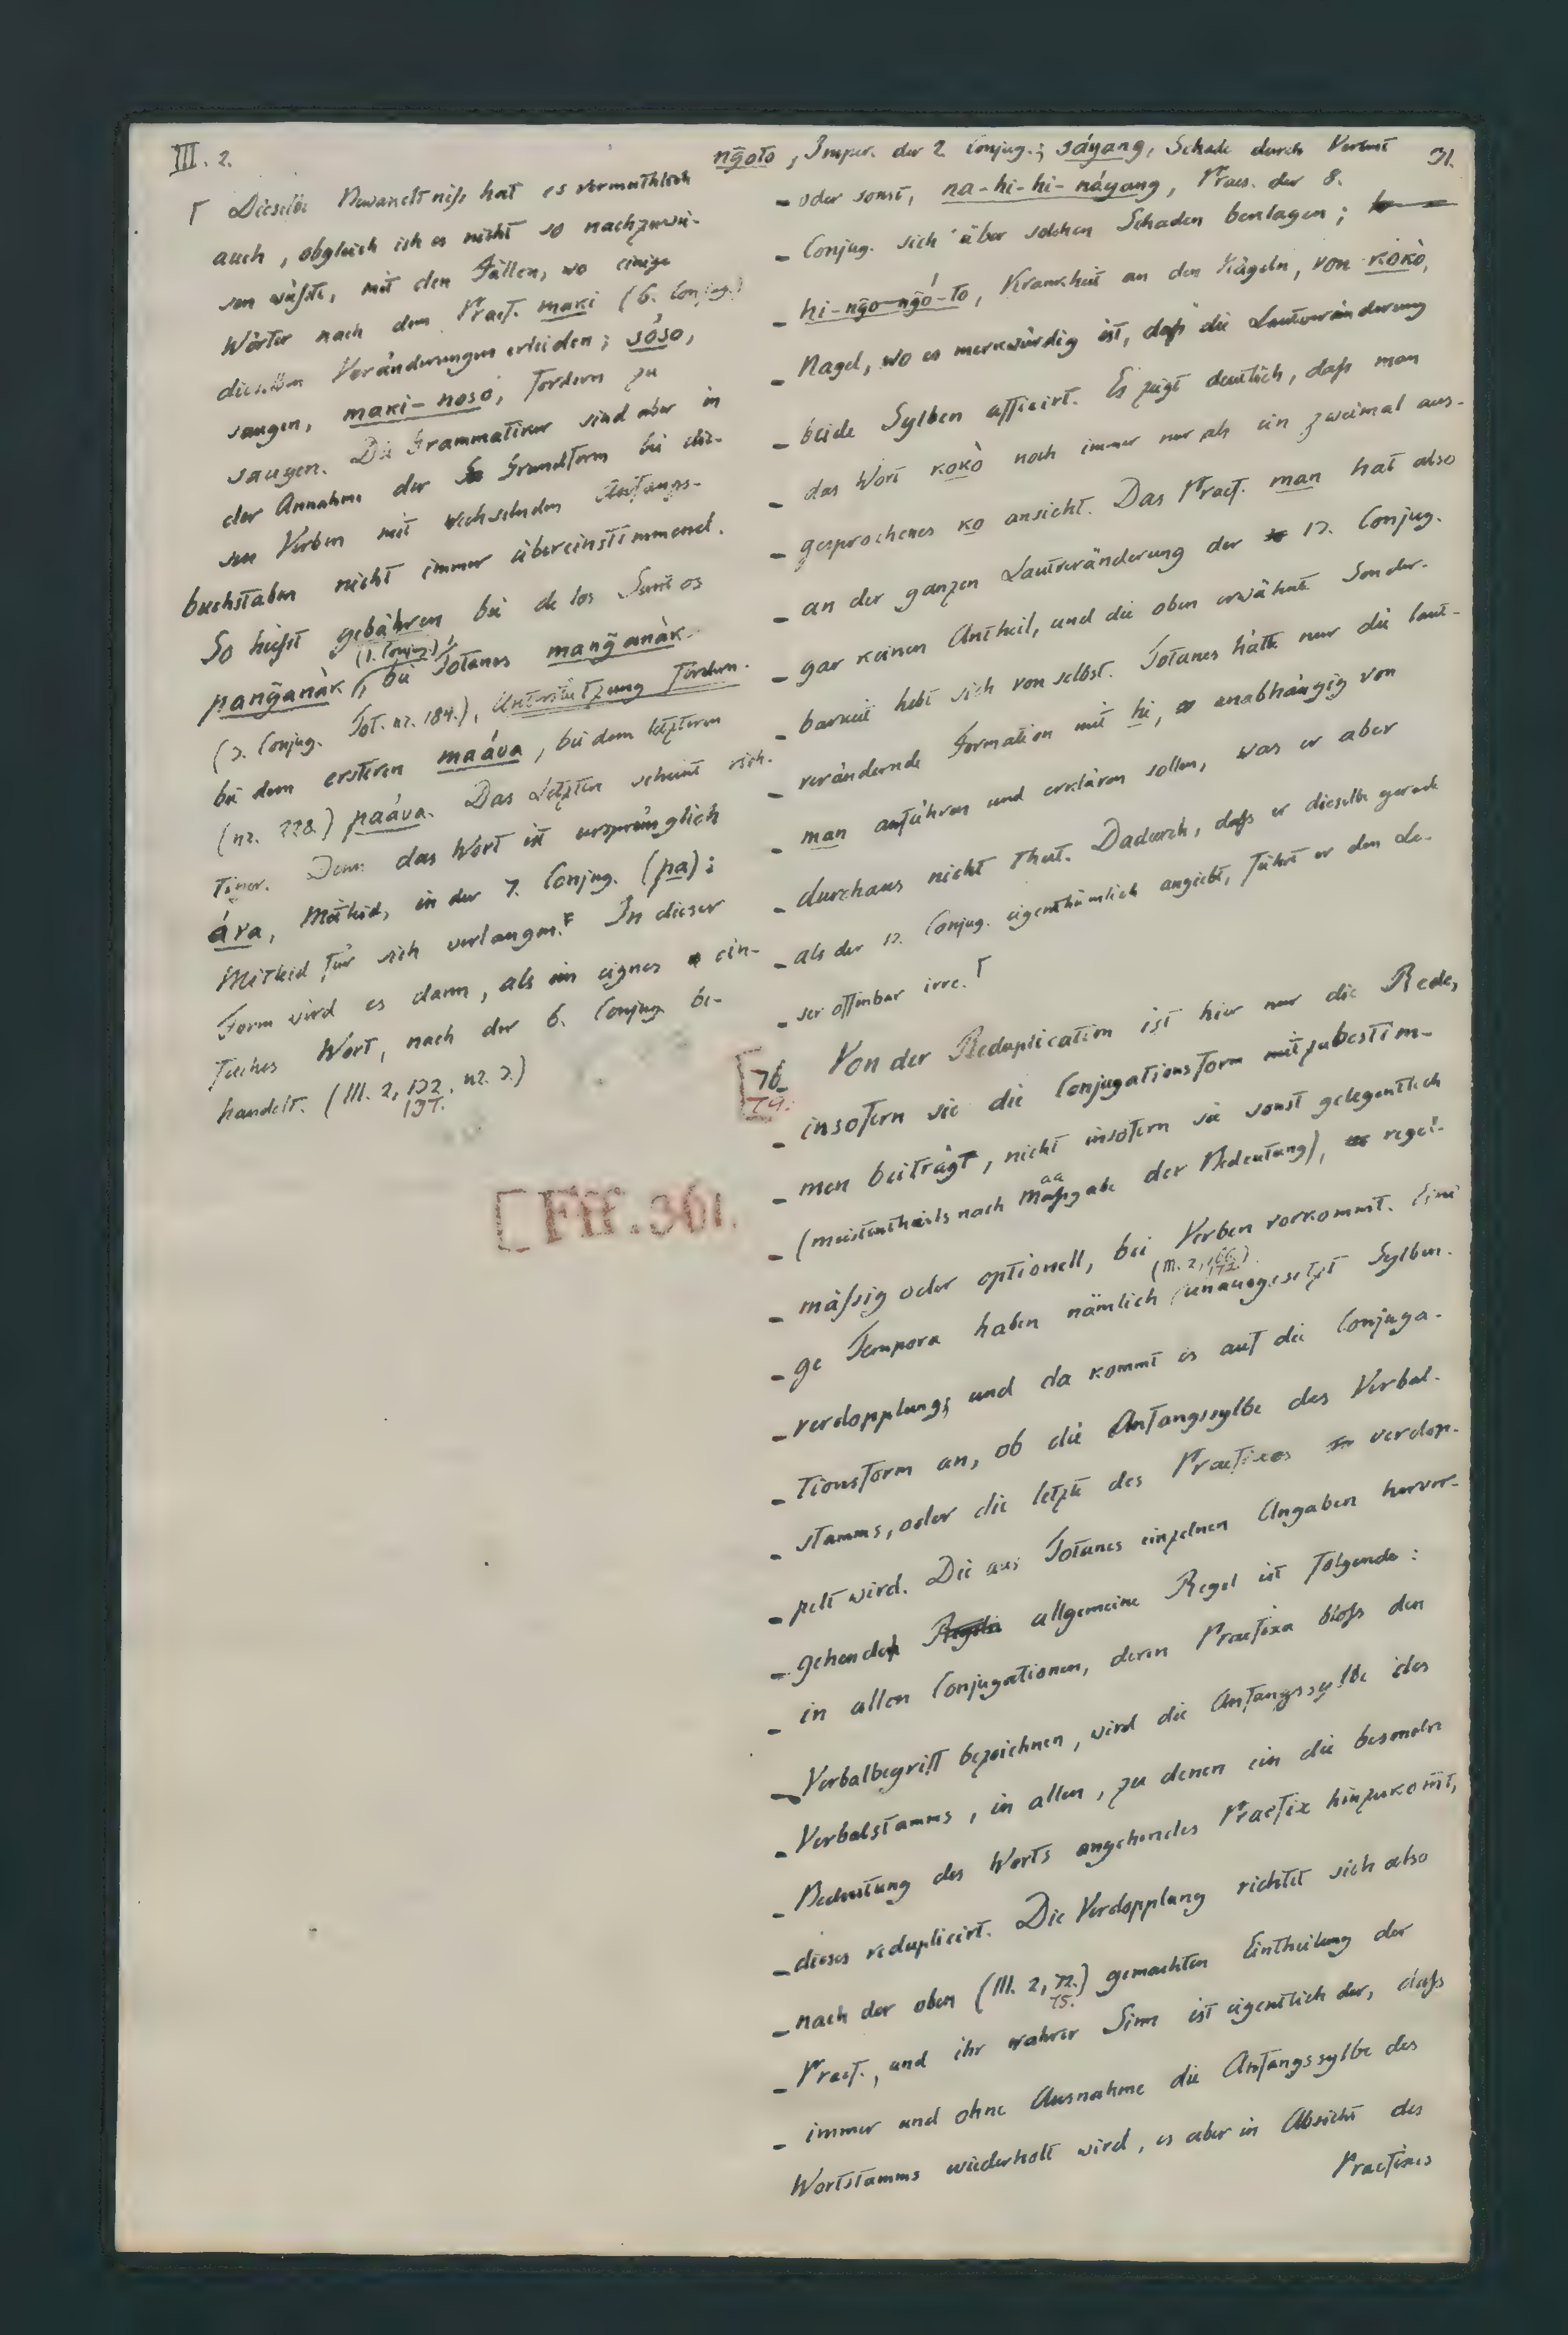 III. 2.
⌈ Dieselbe Bewandtniß hat es vermuthlich
auch, obgleich ich es nicht so nachzuwei-
sen wüßte, mit den Fällen, wo einige
Wörter nach dem Praef. maki (6. Conjug.)
dieselben Veränderungen erleiden; sóso,
saugen, maki-noso, fordern zu
saugen. Die Grammatiker sind aber in
der Annahme der Grundform bei die-
sen Verben mit wechselnden Anfangs-
buchstaben nicht immer übereinstimmend.
So heißt gebähren bei de los Santos
panğanàk (1. Conjug.), bei Totanes manğanàk
(3. Conjug. Tot. nr. 184.), Unterstützung fordern
bei dem ersteren maáva, bei dem letzteren
(nr. 228.) paáva. Das Letztere scheint rich-
tiger. Denn das Wort ist ursprünglich
áva, Mitleid, in der 7. Conjug. (pa):
Mitleid für sich verlangen. In dieser
Form wird es dann, als ein eignes ein-
faches Wort, nach der 6. Conjug. be-
handelt. (III. 2, 132. nr. 3.)
137.
[Fff. 361.
ngoto, Imper. der 2. Conjug.; sáyang, Schade durch Verlust
31.
- oder sonst, na-hi-hi-náyang, Praes. der 8.
- Conjug. sich über solchen Schaden beklagen;
- hi-ngo-ngó-to, Krankheit an den Nägeln, von kokò,
- Nagel, wo es merkwürdig ist, daß die Lautveränderung
- beide Sylben afficirt. Es zeigt deutlich, daß man
- das Wort kokò noch immer nur als ein zweimal aus-
- gesprochenes ko ansieht. Das Praef. man hat also
- an der ganzen Lautveränderung der 12. Conjug.
- gar keinen Antheil, und die oben erwähnte Sonder-
- barkeit hebt sich von selbst. Totanes hätte nur die laut-
- verändernde Formation mit hi, unabhängig von
- man anführen und erklären sollen, was er aber
- durchaus nicht thut. Dadurch, daß er dieselbe gerade
- als der 12. Conjug. eigenthümlich angiebt, führt er den Le-
- ser offenbar irre. ⌈
[76.
79.
Von der Reduplication ist hier nur die Rede,
- insofern sie die Conjugationsform mitzubestim-
- men beiträgt, nicht insofern sie sonst gelegentlich
- (meistentheils nach Maßgabe der Bedeutung), regel-
aa
- mäßig oder optionell, bei Verben vorkommt. Eini-
- ge Tempora haben nämlich (III. 2, 172.) unausgesetzt Sylben-
- verdopplung, und da kommt es auf die Conjuga-
- tionsform an, ob die Anfangssylbe des Verbal-
- stamms, oder die letzte des Praefixes verdop-
- pelt wird. Die aus Totanes einzelnen Angaben hervor-
- gehende allgemeine Regel ist folgende:
- in allen Conjugationen, deren Praefixa bloß den
- Verbalbegriff bezeichnen, wird die Anfangssylbe des
- Verbalstamms, in allen, zu denen ein die besondre
- Bedeutung des Worts angehendes Praefix hinzukom̄t,
- dieses reduplicirt. Die Verdopplung richtet sich also
- nach der oben (III. 2, 72.) gemachten Eintheilung der
75.
- Praef., und ihr wahrer Sinn ist eigentlich der, daß
- immer und ohne Ausnahme die Anfangssylbe des
Wortstamms wiederholt wird, es aber in Absicht des
Praefixes